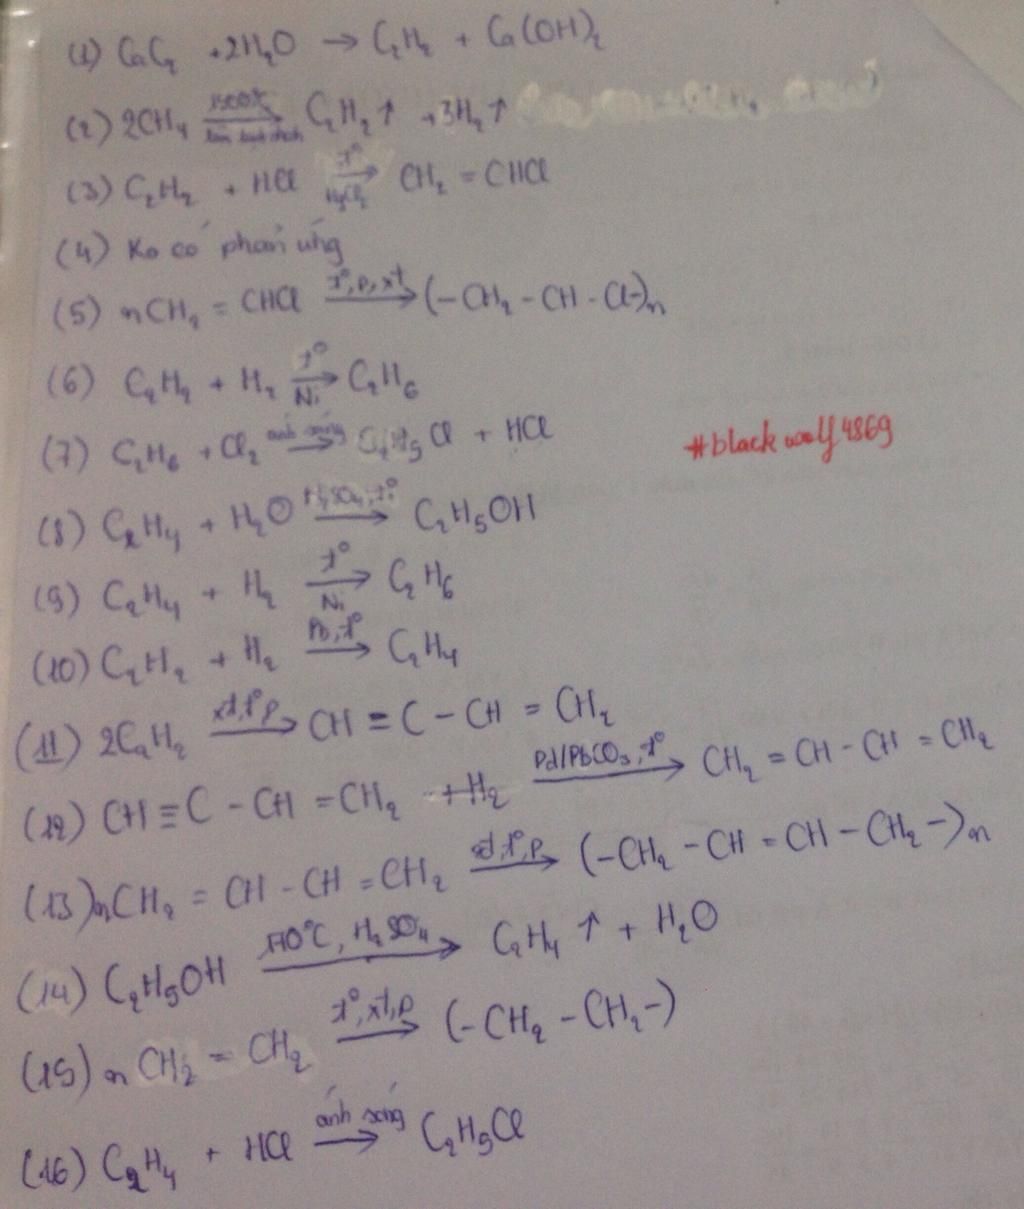 (1) CaC₂ + 2H₂O → C₂H₂ + Ca(OH)₂
(2) 2CH₄ →[1500°C, làm lạnh nhanh] C₂H₂↑ + 3H₂↑
(3) C₂H₂ + HCl →[t°, HgCl₂] CH₂ = CHCl
(4) Ko có phản ứng
(5) nCH₂ = CHCl →[t°, p, xt] (-CH₂ - CH - Cl-)n
(6) C₂H₄ + H₂ →[t°, Ni] C₂H₆
(7) C₂H₆ + Cl₂ →[ánh sáng] C₂H₅Cl + HCl
#blackwolf4869
(8) C₂H₄ + H₂O →[H₂SO₄, t°] C₂H₅OH
(9) C₂H₄ + H₂ →[t°, Ni] C₂H₆
(10) C₂H₂ + H₂ →[Pb, t°] C₂H₄
(11) 2C₂H₂ →[xt, t°, p] CH ≡ C - CH = CH₂
(12) CH ≡ C - CH = CH₂ + H₂ →[Pd/PbCO₃, t°] CH₂ = CH - CH = CH₂
(13) nCH₂ = CH - CH = CH₂ →[xt, t°, p] (-CH₂ - CH = CH - CH₂-)n
(14) C₂H₅OH →[170°C, H₂SO₄] C₂H₄↑ + H₂O
(15) nCH₂ = CH₂ →[t°, xt, p] (-CH₂ - CH₂-)
(16) C₂H₄ + HCl →[ánh sáng] C₂H₅Cl